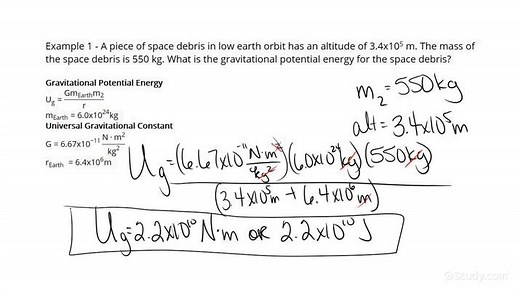 Example 1 - A piece of space debris in low earth orbit has an altitude of 3.4x10⁵ m. The mass of
the space debris is 550 kg. What is the gravitational potential energy for the space debris?
Gravitational Potential Energy
U_g = Gm_Earth m_2 / r
m_Earth = 6.0x10²⁴kg
Universal Gravitational Constant
G = 6.67x10⁻¹¹ N·m² / kg²
r_Earth = 6.4x10⁶m
m₂ = 550kg
alt = 3.4x10⁵m
U_g = (6.67x10⁻¹¹ N·m²/kg²)(6.0x10²⁴kg)(550kg)
(3.4x10⁵m + 6.4x10⁶m)
U_g = 2.2x10¹⁰ N·m OR 2.2x10¹⁰ J
Study.com